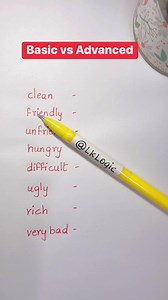 Basic vs Advanced
clean -
friendly -
unfrie
hungry
difficult -
ugly -
rich -
very bad -
@LKLogic